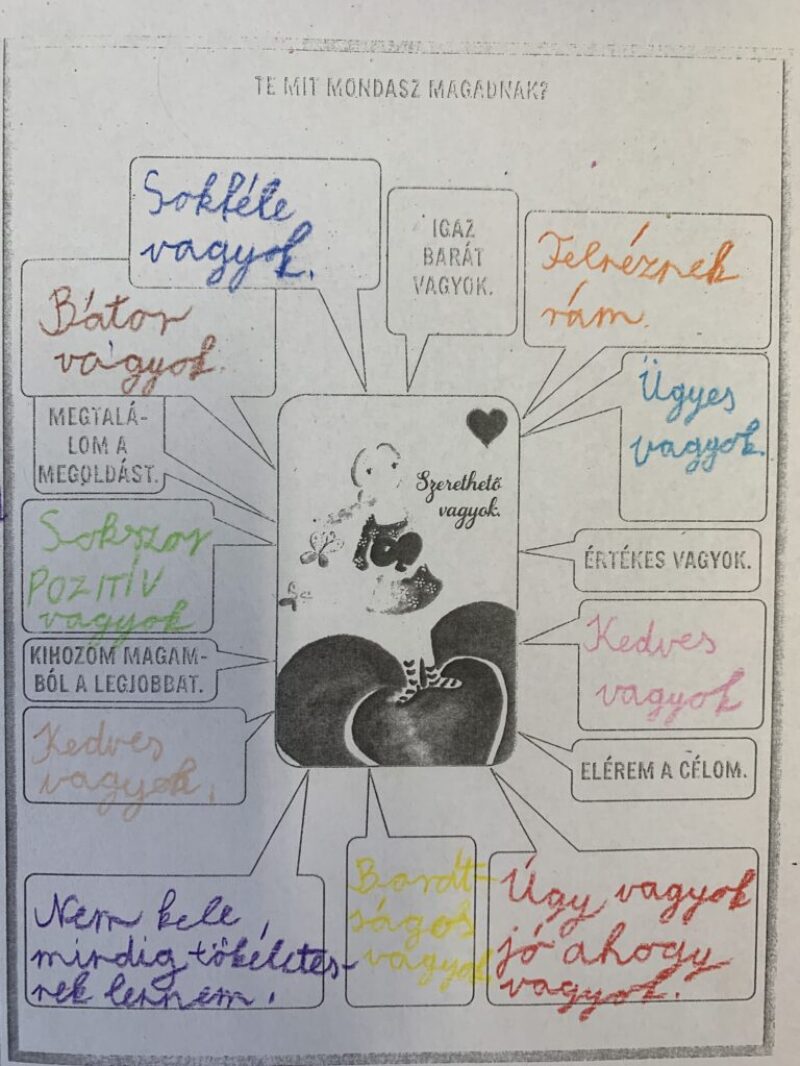 TE MIT MONDASZ MAGADNAK?
Sokféle
vagyok.
IGAZ
BARÁT
VAGYOK.
Felnéznek
rám.
Bátor
vagyok.
Ügyes
vagyok.
MEGTALÁ-
LOM A
MEGOLDÁST.
Szerethető
vagyok.
Sokszor
POZITÍV
vagyok
ÉRTÉKES VAGYOK.
Kedves
vagyok
KIHOZOM MAGAM-
BÓL A LEGJOBBAT.
Kedves
vagyok.
ELÉREM A CÉLOM.
Nem kele
mindig tökéletes-
nek lennem.
Barát-
ságos
vagyok
Úgy vagyok
jó ahogy
vagyok.